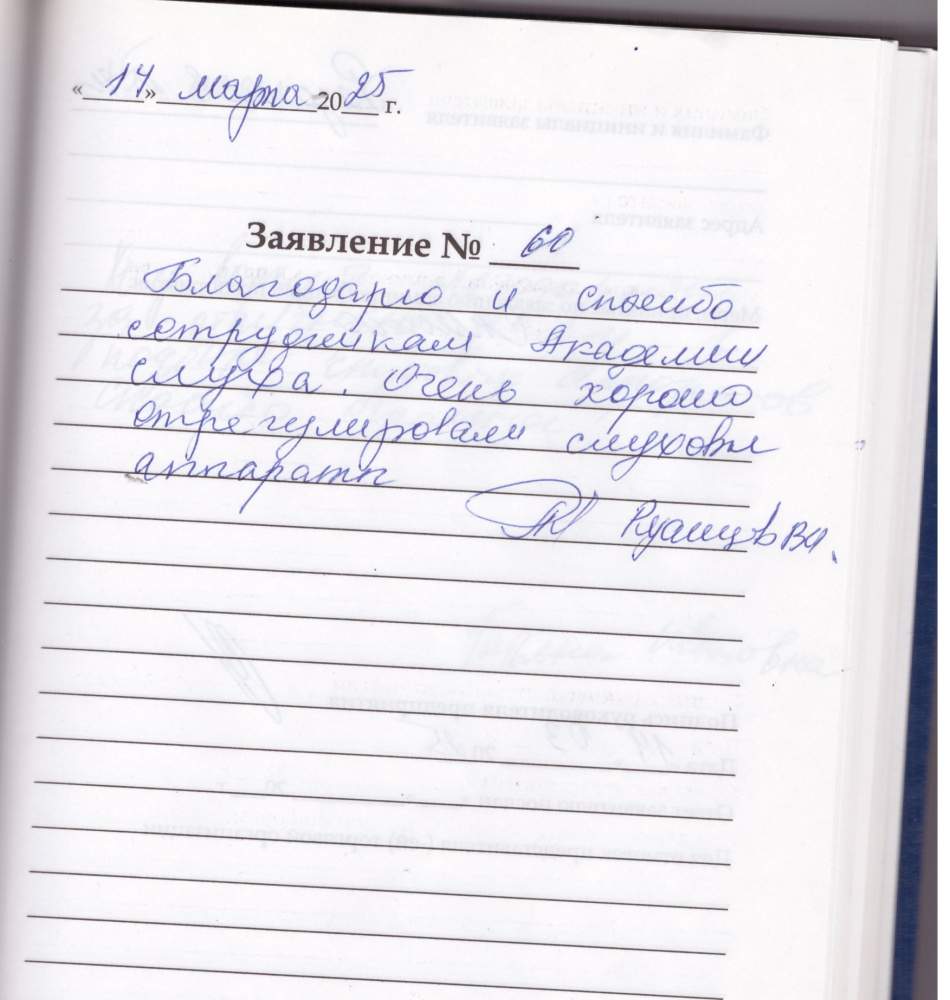 « 14 » марта 2025 г.
Заявление № 60
Благодарю и спасибо
сотрудникам Академии
слуха. Очень хорошо
отрегулировали слуховые
аппараты